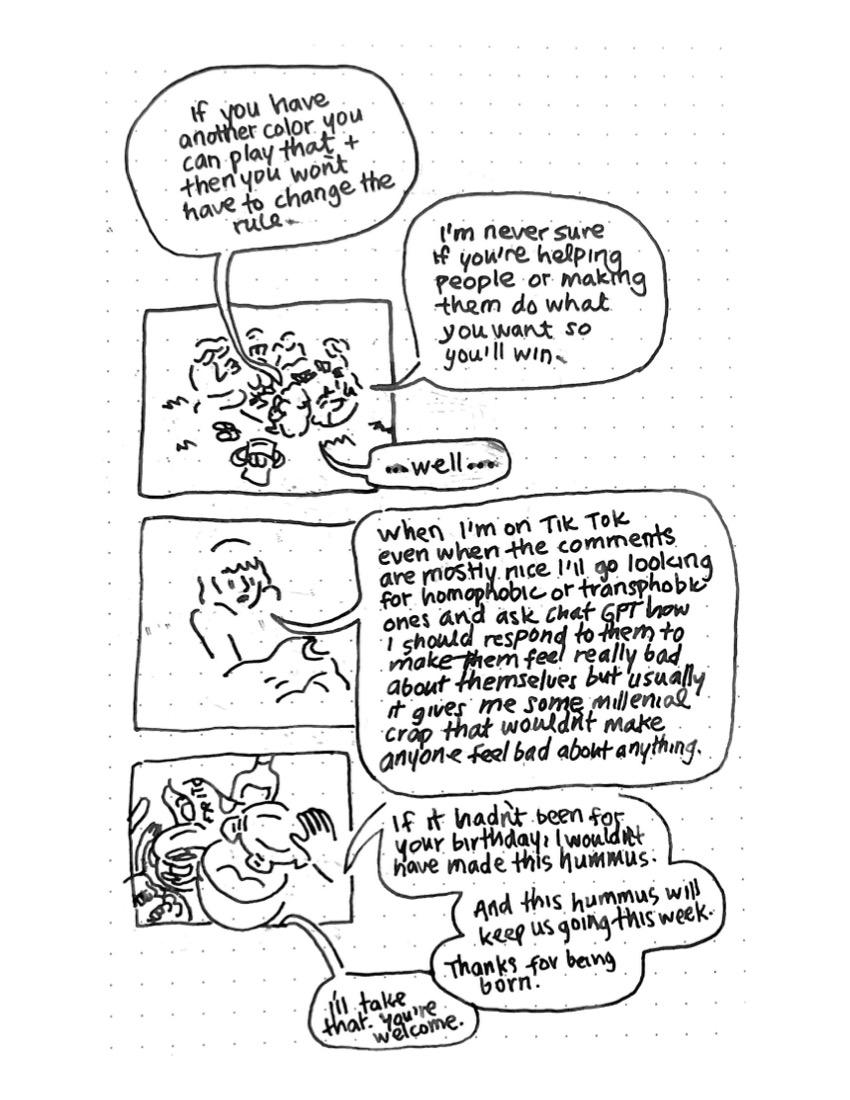 If you have
another color you
can play that +
then you won't
have to change the
rule.
I'm never sure
if you're helping
people or making
them do what
you want so
you'll win.
...well...
When I'm on Tik Tok
even when the comments
are mostly nice I'll go looking
for homophobic or transphobic
ones and ask chat GPT how
I should respond to them to
make them feel really bad
about themselves but usually
it gives me some millenial
crap that wouldn't make
anyone feel bad about anything.
If it hadn't been for
your birthday, I wouldn't
have made this hummus.
And this hummus will
keep us going this week.
Thanks for being
born.
I'll take
that. You're
welcome.